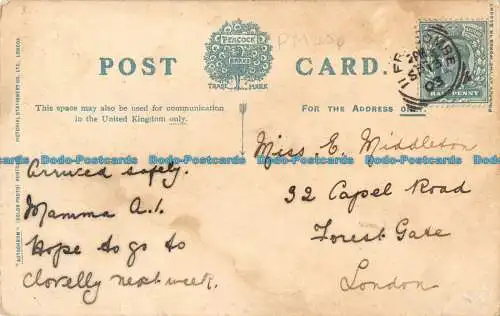 PEACOCK
BRAND
TRADE MARK
POST CARD.
This space may also be used for communication
in the United Kingdom only.
FOR THE ADDRESS ONLY.
HALF PENNY
Arrived safely.
Mamma A.1.
Hope to go to
Clovelly next week.
Miss E. Middleton
32 Capel Road
Forest Gate
London
Dodo-Postcards Dodo-Postcards Dodo-Postcards Dodo-Postcards
Dodo-Postcards Dodo-Postcards Dodo-Postcards Dodo-Postcards